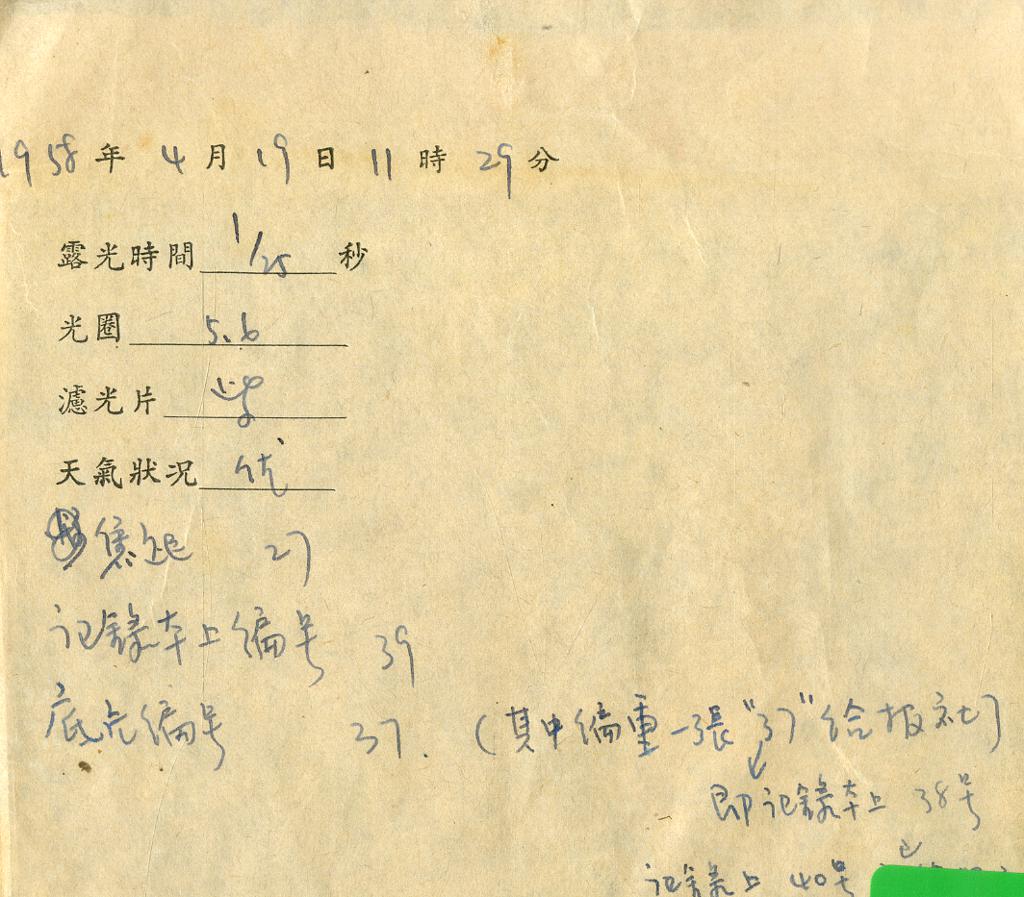 1958年 4月 19日 11時 29分
露光時間 1/25 秒
光圈 5.6
濾光片
天氣狀况 优
焦距 27
记錄本上编号 39
底片编号 37. (其中编重一張"37"给报社)
即记錄本上 38号
记錄上 40号